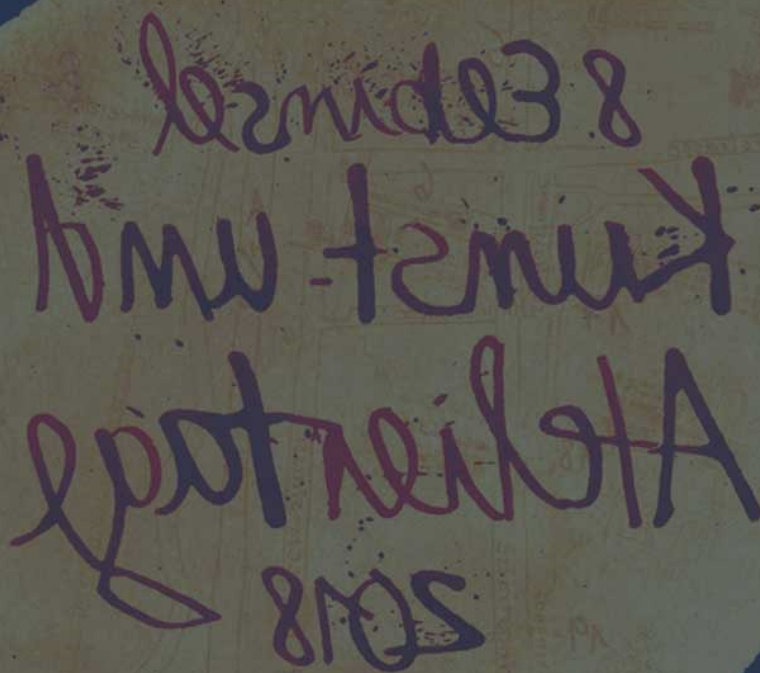 8. Elbinsel
Kunst- und
Ateliertage
2018